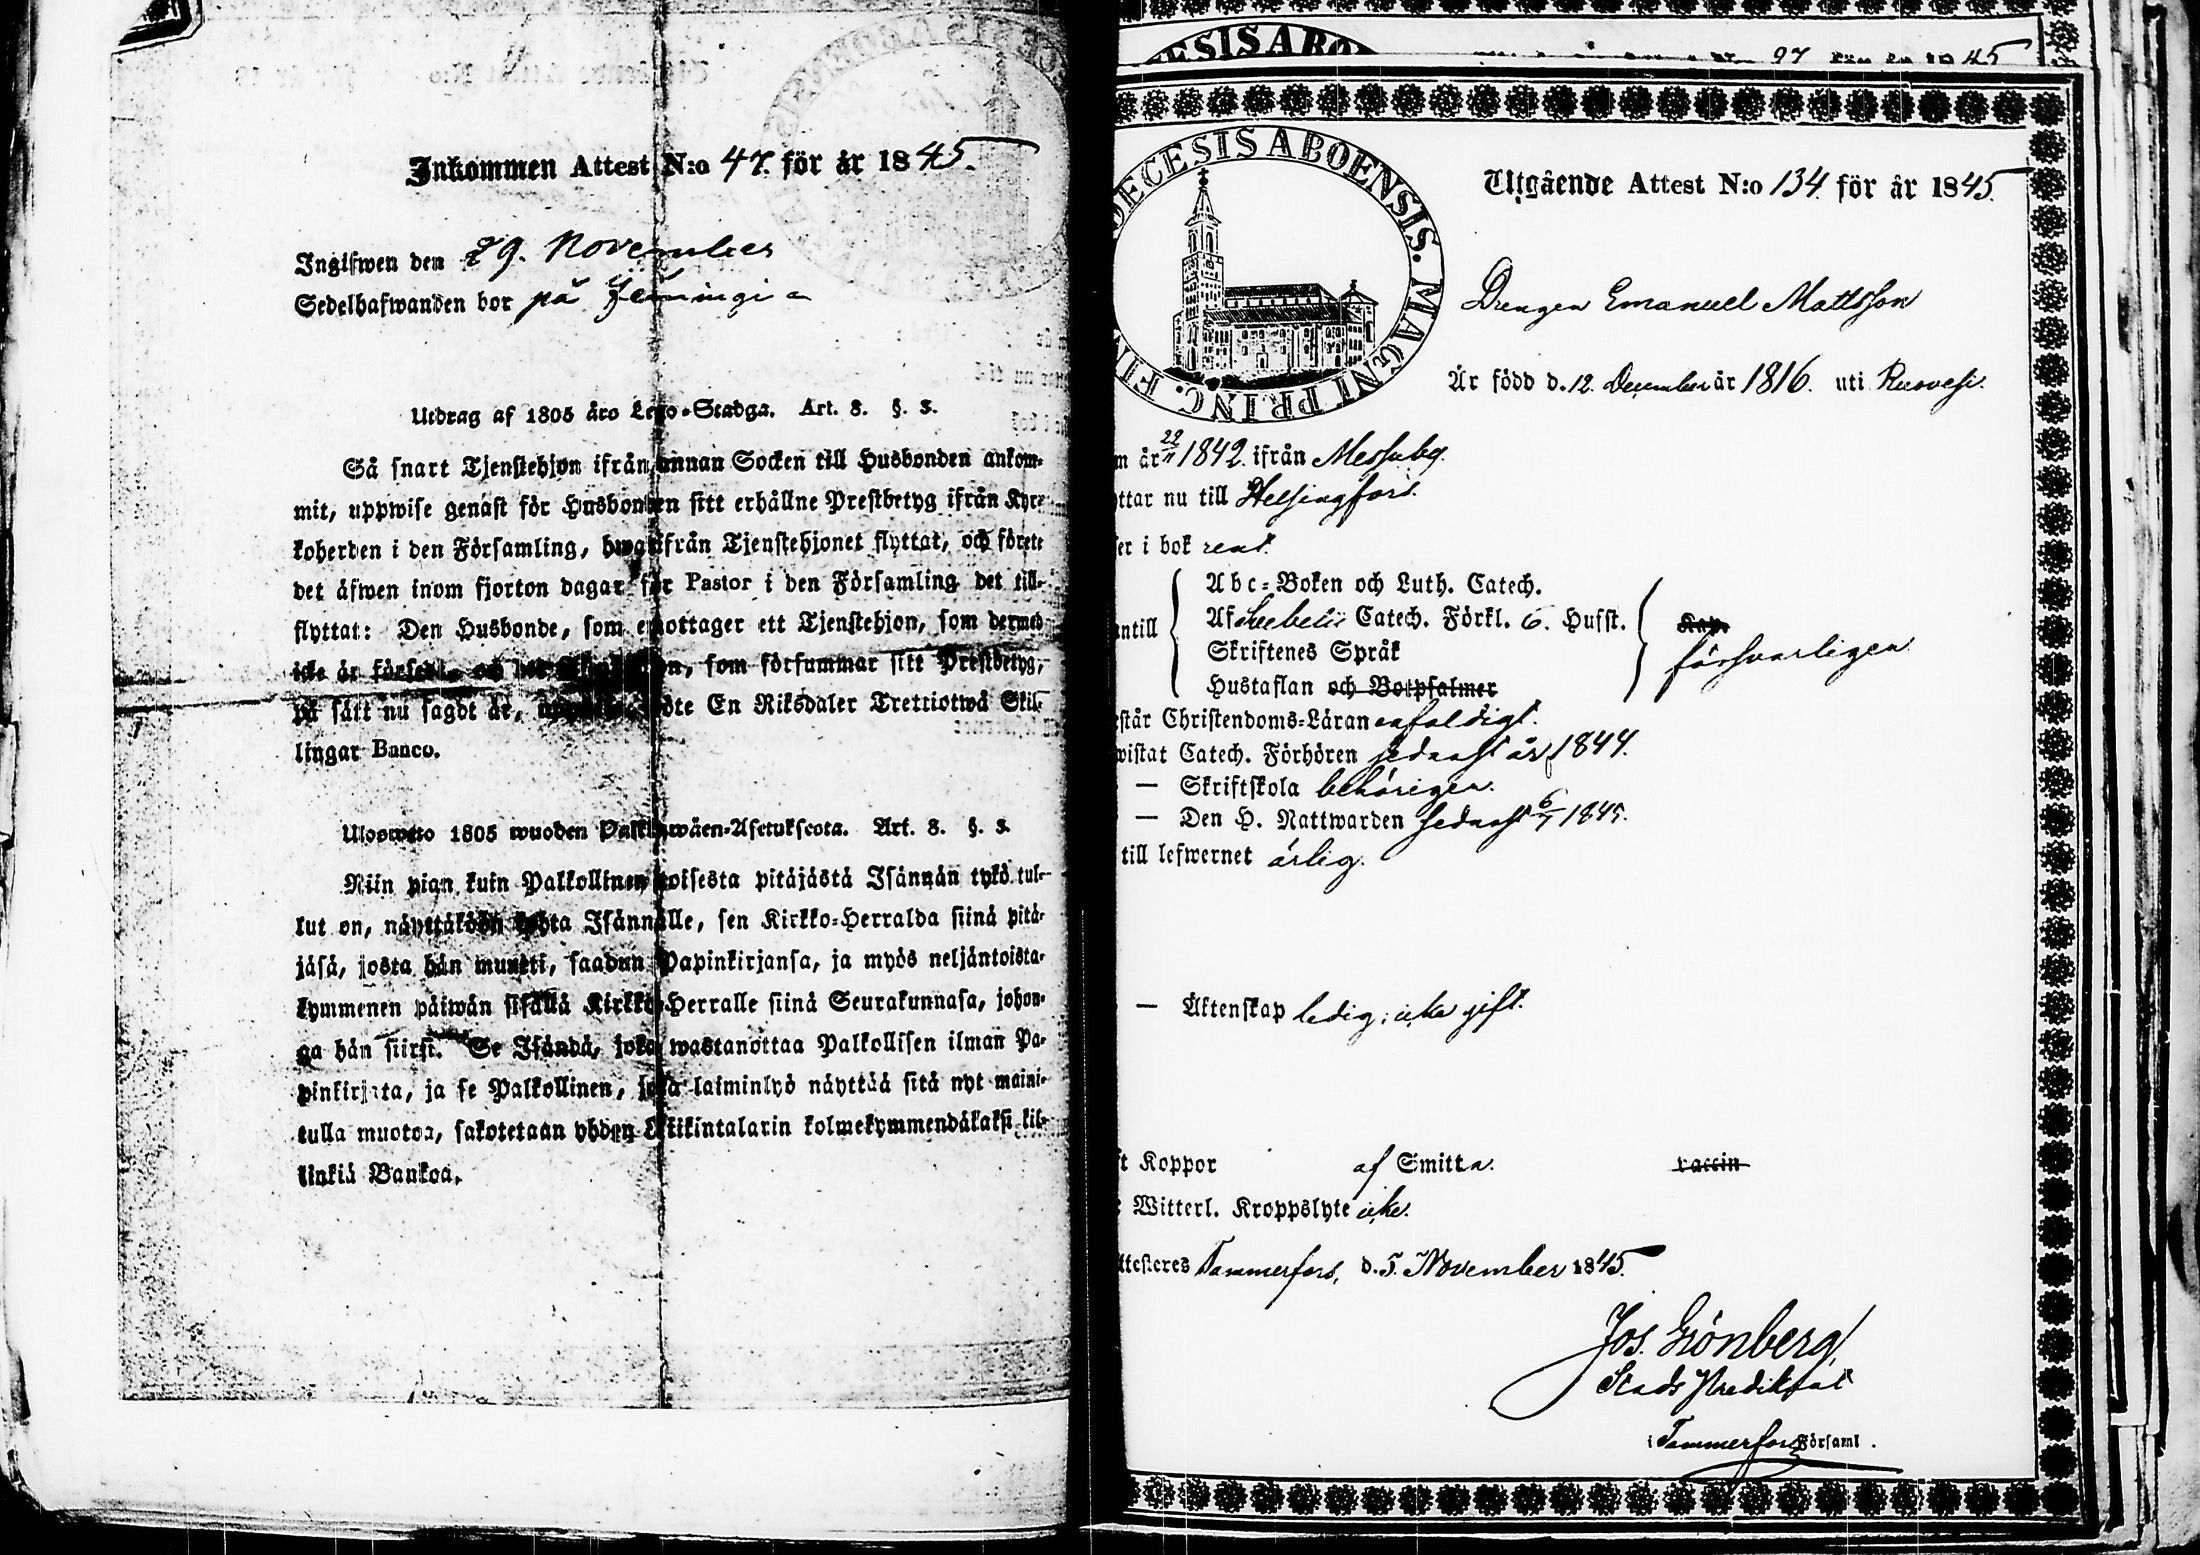 Inkommen Attest N:o 47. för år 1845.
Ingifwen den 29. November
Sedelhafwanden bor på
Utdrag af 1805 års Lego-Stadga. Art. 8. §. 3.
Så snart Tjenstehjon ifrån annan Socken till Husbonden ankom-
mit, uppwise genast för Husbonden sitt erhållne Prestbetyg ifrån Kyr-
koherden i den Församling, hwarifrån Tjenstehjonet flyttat, och förete
det äfwen inom fjorton dagar för Pastor i den Församling det till-
flyttat: Den Husbonde, som emottager ett Tjenstehjon, som dermed
icke är försedt, och som försummar sitt Prestbetyg,
på sätt nu sagdt är, böte En Riksdaler Trettiotwå Skil-
lingar Banco.
Ulosweto 1805 wuoden Palkkawäen-Asetuksesta. Art. 8. §. 3.
Niin pian kuin Palkollinen toisesta pitäjästä Isännän tykö tul-
lut on, näyttäköön kohta Isännälle, sen Kirkko-Herralda siinä pitä-
jäsä, josta hän muutti, saadun Papinkirjansa, ja myös neljäntoista-
kymmenen päiwän sisällä Kirkko-Herralle siinä Seurakunnasa, johon-
ga hän siirsi. Se Isändä, joka wastanottaa Palkollisen ilman Pa-
pinkirjata, ja se Palkollinen, joka laiminlyö näyttää sitä nyt maini-
tulla muotoa, sakotetaan yhden Riikintalarin kolmekymmendäkaksi kil-
linkiä Bankoa.
ESIS ABO
97 för år 1845
DECESIS ABOENSIS. MAGNI PRINC. FIN
Utgående Attest N:o 134. för år 1845.
Drengen Emanuel Mattsson
Är född d. 12. December år 1816. uti Ruovesi.
m år 22/11 1842. ifrån Messuby.
ttar nu till Helsingfors.
er i bok rent.
Abc-Boken och Luth. Catech.
Af Svebelii Catech. Förkl. 6. Hufst.
ntill
Skriftenes Språk
Hustaflan och Botpsalmer
försvarligen
står Christendoms-Läran enfaldigt.
wistat Catech. Förhören sednast år 1844.
— Skriftskola behörigen.
— Den H. Nattwarden sednast 6/7 1845.
till lefwernet ärlig.
— Äktenskap ledig; icke gift.
t Koppor af Smitta. vaccin
Witterl. Kroppslyte icke.
ttesteres Tammerfors, d. 5. November 1845.
Jos. Grönberg,
Stads Predikant
i Tammerfors Församl.